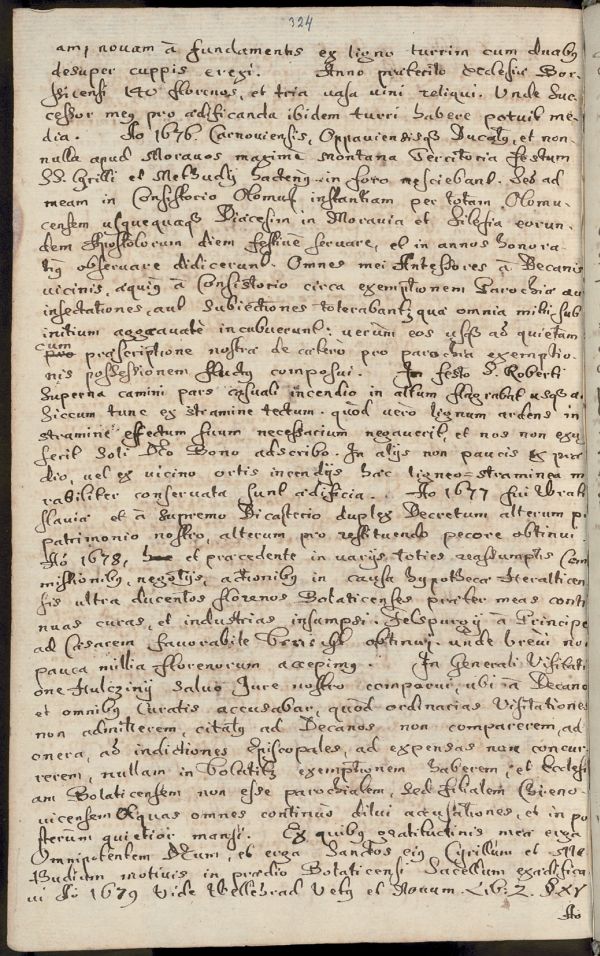 324
am, novam à fundamentis ex ligno turrim cum duabq
desuper cuppis erexi. Anno praeterito Ecclesia Bor-
sicensi 140 florenos, et tria vasa vini reliqui. Unde suc-
cessor meq pro aedificanda ibidem turri habere potuit me-
dia. Ao 1676. Carnoviensis, Oppaviensisq Ducatq, et non-
nulla apud Moravos maximè Montana Territoria festum
SS. Cyrilli et Methudij hactenq in foro nesciebant. Sed ad
meam in Consistorio Olomuc instantiam per totam Olomu-
censem usquequaq Diaecesim in Moravia et Silesia eorun-
dem Apostolorum diem festivè servare, et in annos honora-
tiq observare didicerunt. Omnes mei Antessores à Decanis
vicinis, aquiq à Consistorio circa exemptionem Parochiae
insectationes, aut subiectiones tolerabant, qua omnia mihi sub
initium aggravatè incubuerunt: verùm eos usq ad quietam
cum
praescriptione nostra de caetero pro parochia exemptio-
nis possessionem fluctq composui. In festo S. Roberti
superna camini pars casuali incendio in altum flagrabat usq a
siccum tunc ex stramine tectum. quod vero lignum ardens in
stramine effectum suum necessarium negaverit, et nos non exu
serit soli Deo Bono adscribo. In alijs non paucis ex prae
dio, vel ex vicino ortis incendijs haec ligneo-straminea m
rabiliter conservata sunt aedificia. Ao 1677 fui Wrati
slaviae et à supremo Dicasterio duplex Decretum alterum p.
patrimonio nostro, alterum pro restituendo pecore obtinui
Ao 1678, et praecedente in varijs toties reassumptis Com
missionibq, negotijs, actionibq in causa hypothecae
sis ultra ducentos florenos Bolaticenses praeter meas conti
nuas curas, et industrias insumpsi. à Principe
ad Caesarem favorabile obtinui, unde brevi non
pauca millia florenorum accepimq. In Generali Visitati
one Hulczinij salvo Jure nostro comparui, ubi à Decano
et omnibq Curatis accusabar, quod ordinarias Visitationes
non admitterem, citatq ad Decanos non comparerem, ad
onera, ad indictiones Episcopales, ad expensas non concur-
rerem, nullam in Bolatitz exemptionem haberem, et Ecclesi
am Bolaticensem non esse parochialem, sed filialem
vicensem quas omnes continuò dilui accusationes, et in po
sterùm quietior mansi. Ex quibq gratitudinis meae erga
Omnipotentem Deum, et erga Sanctos eiq Cyrillum et Me
thudium motivis in praedio Bolaticensi Sacellum exaedifica
vi Ao 1679 Vide Wellehrad Vetq et Novum. Lib: 2. § XV
Ao